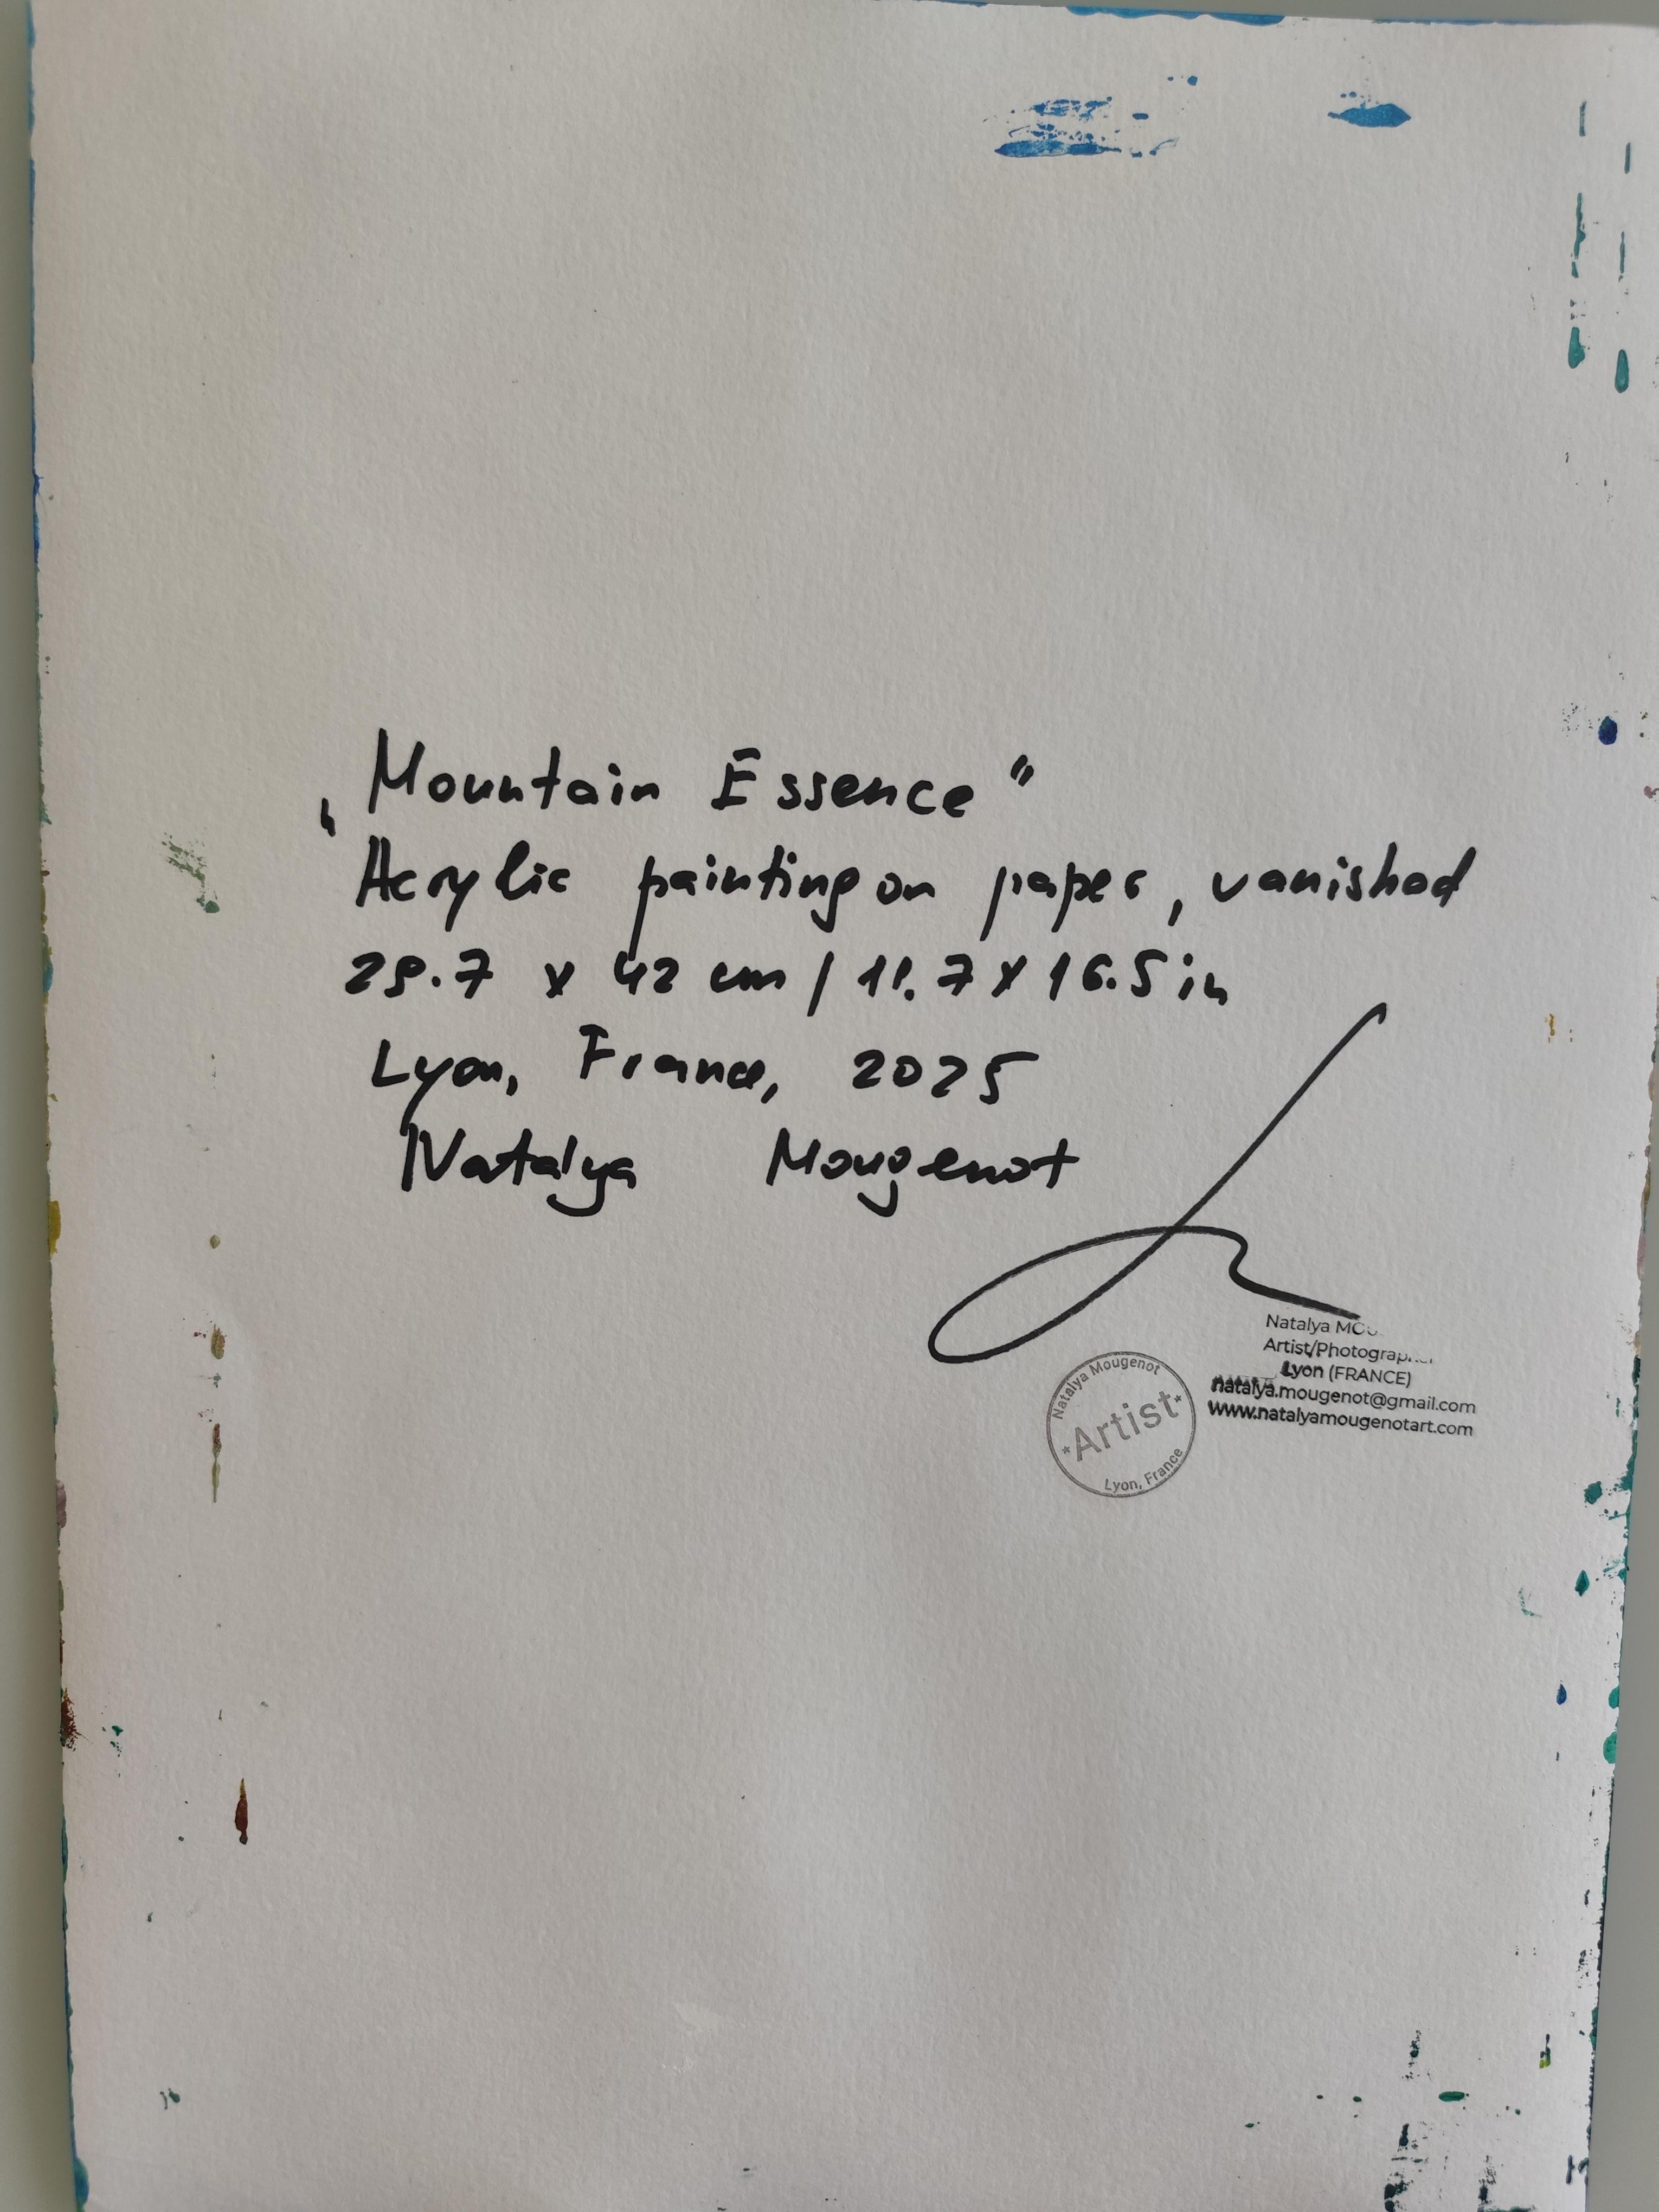 „Mountain Essence"
Acrylic painting on paper, vanished
29.7 x 42 cm / 11.7 x 16.5 in
Lyon, France, 2025
Natalya Mougenot
Natalya
Artist/Photographer
Lyon (FRANCE)
natalya.mougenot@gmail.com
www.natalyamougenotart.com
Natalya Mougenot
*Artist*
Lyon, France